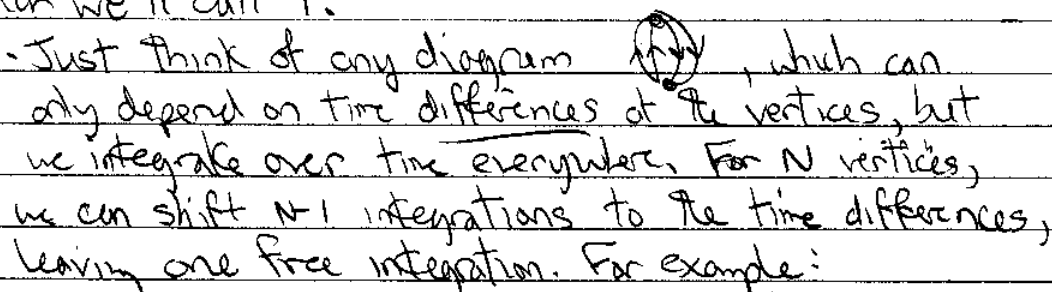 we'll call T.
· Just think of any diagram , which can
only depend on time differences at the vertices, but
we integrate over time everywhere, For N vertices,
we can shift N-1 integrations to the time differences,
leaving one free integration. For example: